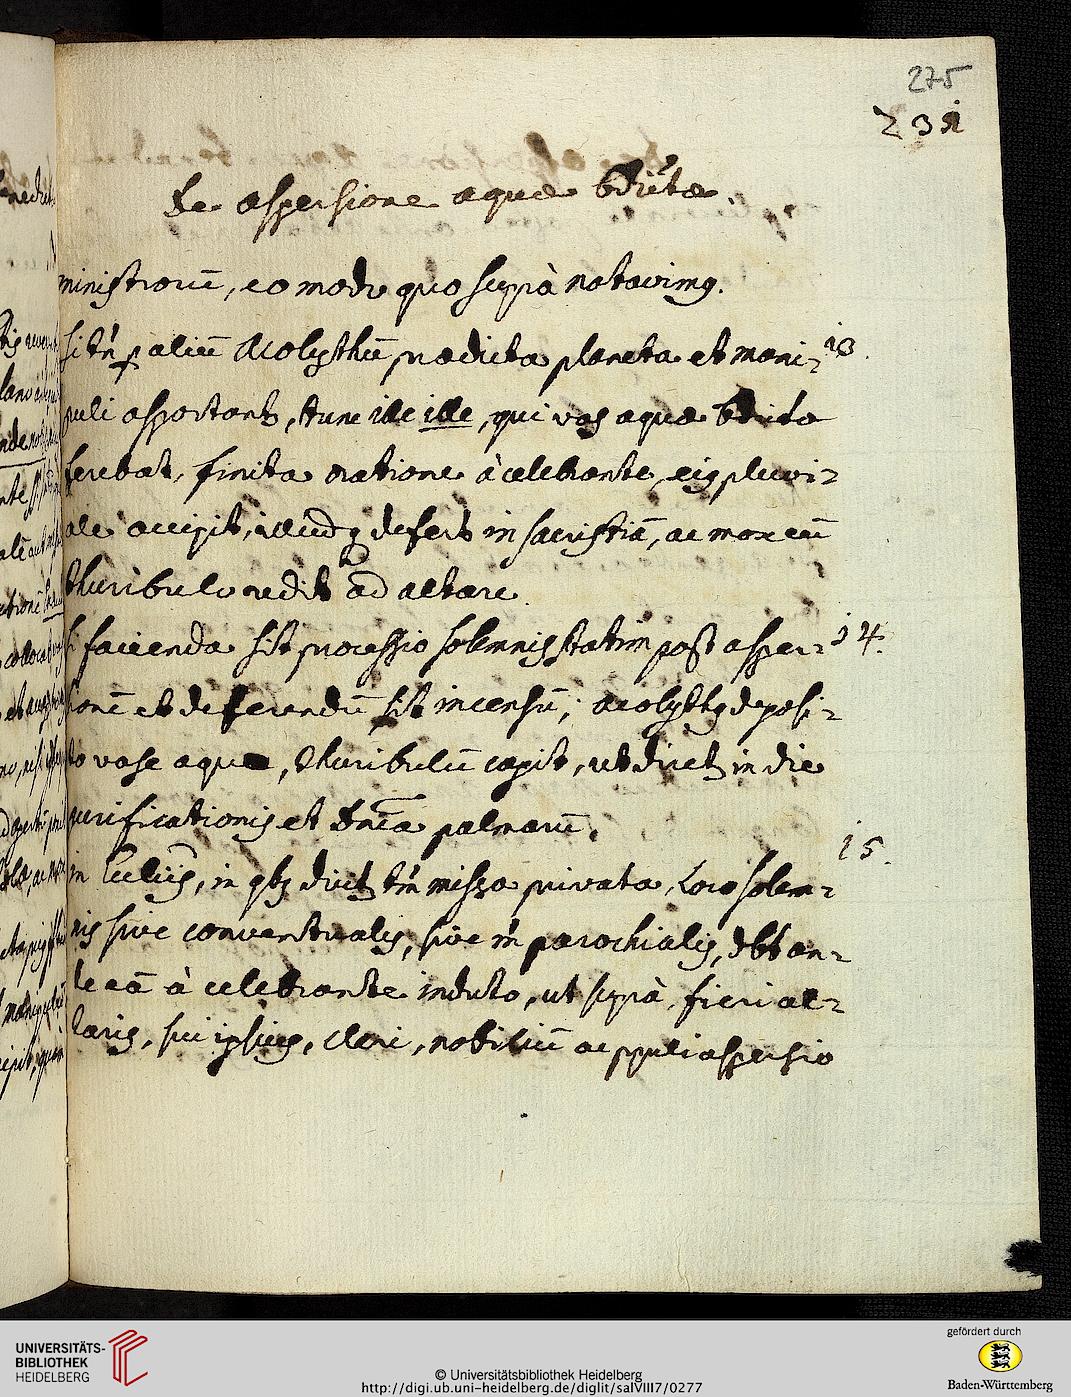 275
231
De aspersione aquæ bdictæ.
ministrorū, eo modo quo suprà notavimꝰ.
si tn̄ p aliū Acolythū prædicta planeta et mani- 13.
puli asportant, tunc ille ille, qui vas aquæ bdictæ
ferebat, finita oratione à celebrante, eiꝰ pluvi-
ale accipit, illudq̧ defert in sacristiā, ac mox cū
thuribulo redit ad altare.
si facienda sit processio solemnis statim post asper- 14.
sionē et deferendū sit incensū, acolythꝰ deposi-
to vase aquæ, thuribulū capit, ut dicet in die
purificationis et Dn̄ica palmarū.
15.
in Ecclīis, in qbꝫ dict tn̄ missa privata, loco solem-
nis sive conventualis, sive n̄ parochialis, dbt an-
te eā à celebrante induto, ut suprà, fieri al-
taris, sui ipsius, cleri, nobiliū ac ppuli aspersio
UNIVERSITÄTS-
BIBLIOTHEK
HEIDELBERG
© Universitätsbibliothek Heidelberg
http://digi.ub.uni-heidelberg.de/diglit/salVIII7/0277
gefördert durch
Baden-Württemberg